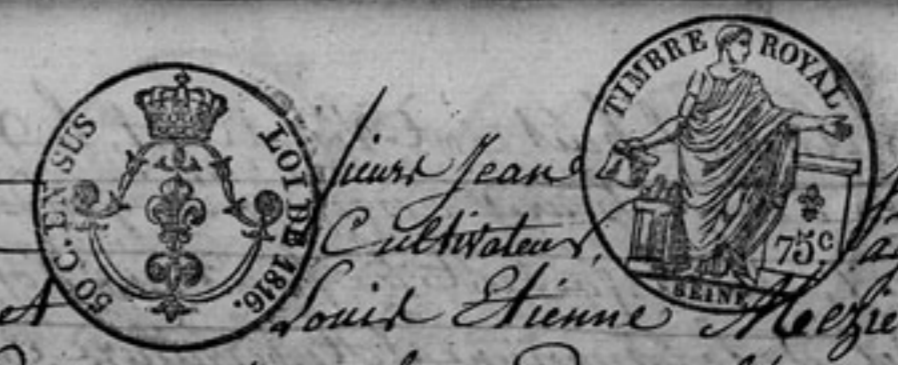 50 C. EN SUS
LOI DE 1816.
TIMBRE ROYAL
75c
SEINE
Sieurs Jean
Cultivateur,
et Louis Etienne Mezie